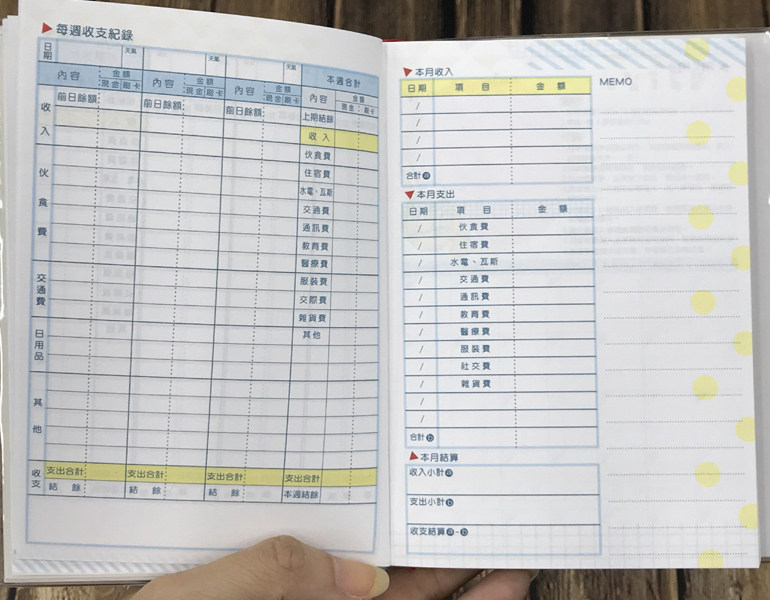 每週收支紀錄
日期 天氣 天氣 天氣 本週合計
內容 金額 內容 金額 內容 金額 內容 金額
現金 刷卡 現金 刷卡 現金 刷卡 現金 刷卡
收入 前日餘額 前日餘額 前日餘額 上期結餘
收入
伙食費 伙食費
住宿費
水電、瓦斯
交通費
通訊費
教育費
醫療費
交通費 服裝費
交際費
雜貨費
日用品 其他
其他
收支 支出合計 支出合計 支出合計 支出合計
結餘 結餘 結餘 本週結餘
本月收入
日期 項目 金額
/
/
/
/
合計ⓐ
本月支出
日期 項目 金額
/ 伙食費
/ 住宿費
/ 水電、瓦斯
/ 交通費
/ 通訊費
/ 教育費
/ 醫療費
/ 服裝費
/ 社交費
/ 雜貨費
/
/
合計ⓑ
本月結算
收入小計ⓐ
支出小計ⓑ
收支結算ⓐ-ⓑ
MEMO